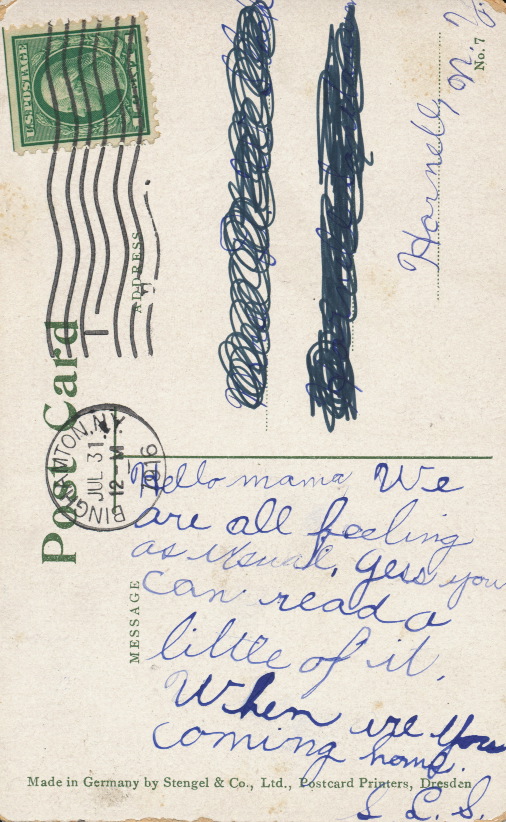 U.S. POSTAGE
Post Card
ADDRESS
BINGHAMTON, N.Y.
JUL 31
12 - M
1916
Hornell, N.Y.
No. 7
MESSAGE
Hello mama, We
are all feeling
as usual, gess you
can read a
little of it.
When are you
coming home.
S. L. S.
Made in Germany by Stengel & Co., Ltd., Postcard Printers, Dresden